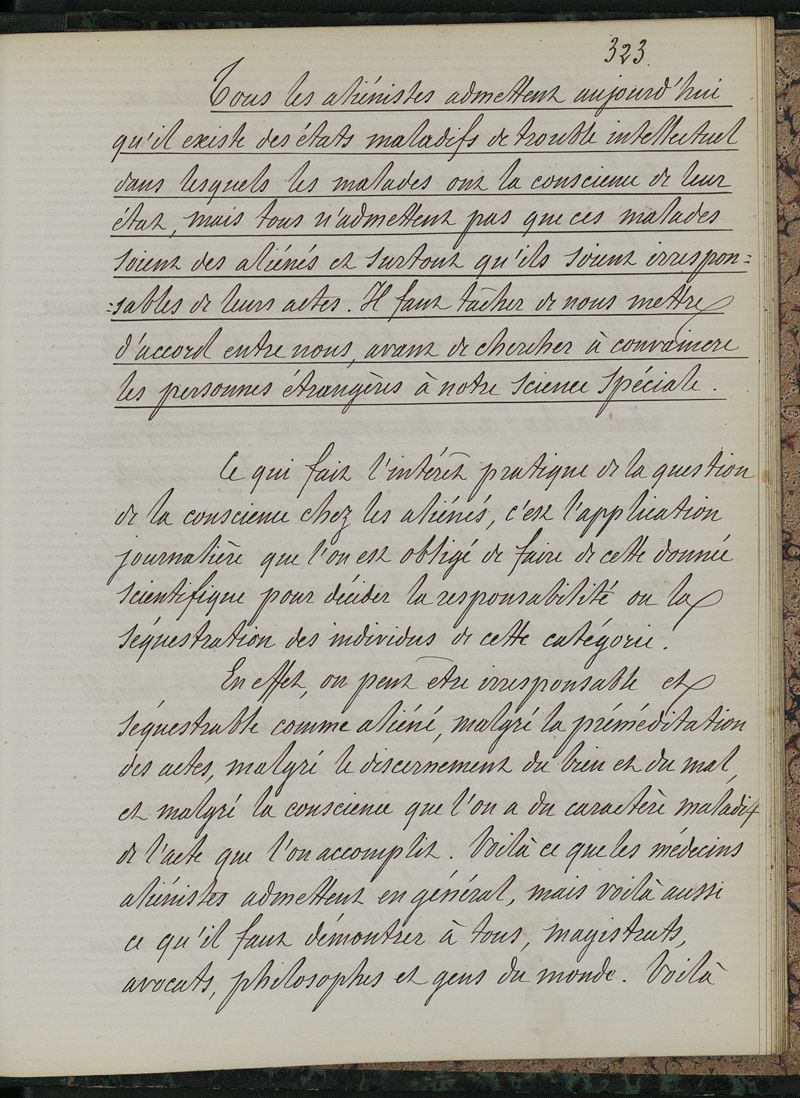 323.
Tous les aliénistes admettent aujourd'hui
qu'il existe des états maladifs de trouble intellectuel
dans lesquels les malades ont la conscience de leur
état, mais tous n'admettent pas que ces malades
soient des aliénés et surtout qu'ils soient irrespon=
=sables de leurs actes. Il faut tâcher de nous mettre
d'accord entre nous, avant de chercher à convaincre
les personnes étrangères à notre science spéciale.
Ce qui fait l'intérêt pratique de la question
de la conscience chez les aliénés, c'est l'application
journalière que l'on est obligé de faire de cette donnée
scientifique pour décider la responsabilité ou la
séquestration des individus de cette catégorie.
En effet, on peut être irresponsable et
séquestrable comme aliéné, malgré la préméditation
des actes, malgré le discernement du bien et du mal,
et malgré la conscience que l'on a du caractère maladif
de l'acte que l'on accomplit. Voilà ce que les médecins
aliénistes admettent en général, mais voilà aussi
ce qu'il faut démontrer à tous, magistrats,
avocats, philosophes et gens du monde. Voilà